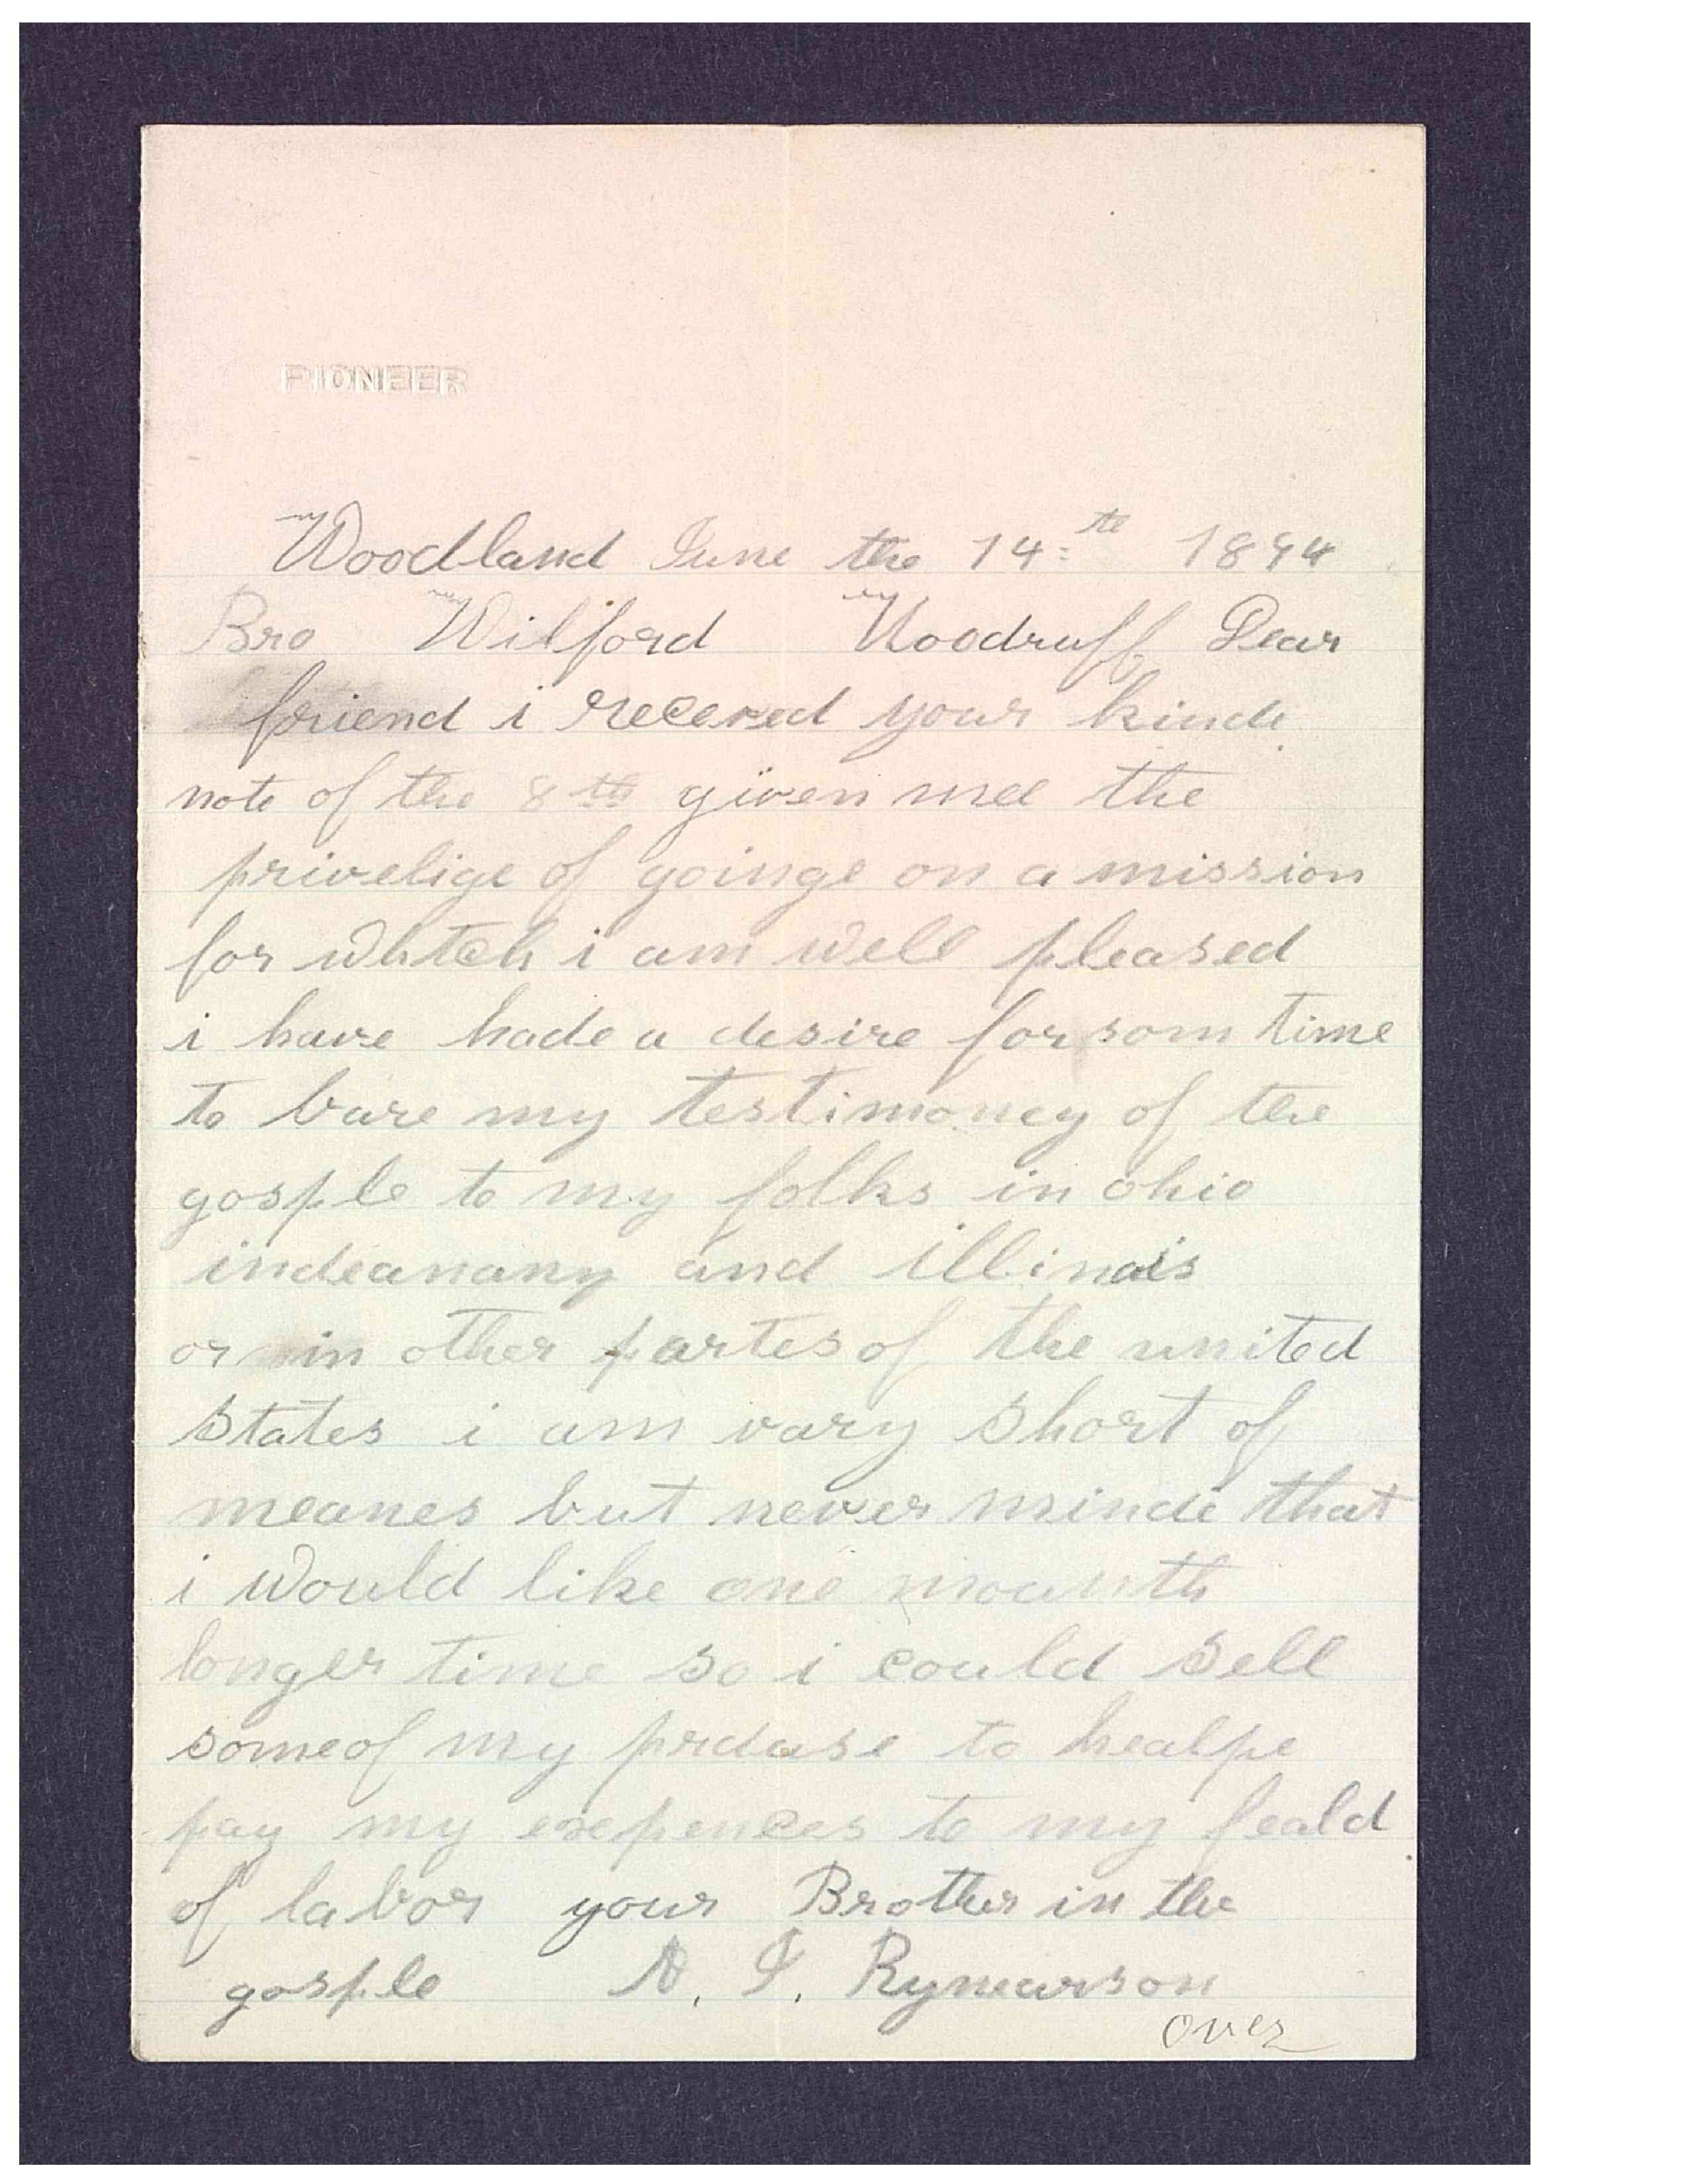 PIONEER
Woodland June the 14th 1894
Bro Wilford Woodruff Dear
friend i receved your kinde
note of the 8th given mee the
privelige of goinge on a mission
for which i am well pleased
i have hade a desire for som time
to bare my testimoney of the
gosple to my folks in ohio
indeanany and illinois
or in other partes of the united
states i am vary short of
meanes but never minde that
i would like one mounth
longer time so i could sell
some of my prduse to healpe
pay my exepences to my feald
of labor your Brother in the
gosple A. I. Rynearson
over